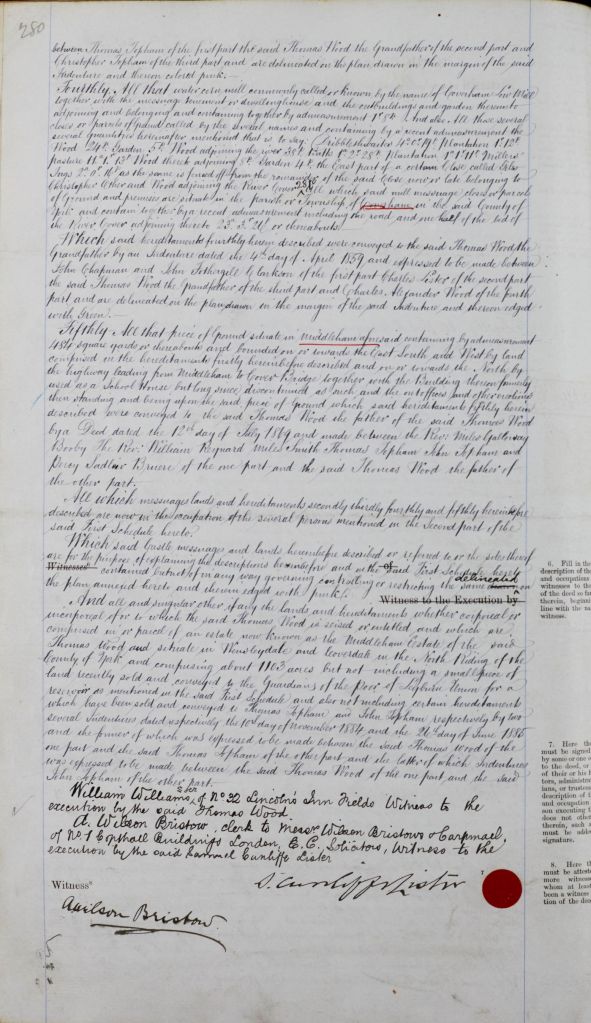 280
between Thomas Topham of the first part the said Thomas Wood the Grandfather of the second part and
Christopher Topham of the third part and are delineated on the plan drawn in the margin of the said
Indenture and thereon colored pink.
Fourthly. All that water corn mill commonly called or known by the name of Coverham Low Mill
together with the messuage tenement or dwellinghouse and the outbuildings and garden thereunto
adjoining and belonging and containing together by admeasurement And also All those several
closes or parcels of Ground called by the several names and containing by a recent admeasurement the
several quantities hereinafter mentioned that is to say. Plantation
Wood 24p Garden 5p Wood adjoining the river 38p Plantation
pasture Wood thereck adjoining 8p Garden 4p the East part of a certain Close called
Ings as the same is fenced off from the remaining of the said Close now or late belonging to
Christopher Other and Wood adjoining the River Cover all which said mill messuage closes or parcels
of Ground and premises are situate in the parish or Township of Coverham in the said County of
York and contain together by a recent admeasurement including the road and one half of the bed of
the River Cover adjoining thereto or thereabouts.
Which said hereditaments fourthly herein described were conveyed to the said Thomas Wood the
Grandfather by an Indenture dated the 4th day of April 1859 and expressed to be made between
John Chapman and John Fothergill Clarkson of the first part Charles Lister of the second part
the said Thomas Wood the Grandfather of the third part and Charles Alexander Wood of the fourth
part and are delineated on the plan drawn in the margin of the said Indenture and thereon edged
with Green.
Fifthly All that piece of Ground situate in Middleham aforesaid containing by admeasurement
484 square yards or thereabouts and bounded on or towards the East South and West by land
comprised in the hereditaments firstly hereinbefore described and on or towards the North by
the highway leading from Middleham to Cover Bridge together with the Building thereon formerly
used as a School House but long since discontinued as such and the outoffices and other erections
then standing and being upon the said piece of Ground which said hereditaments fifthly herein
described were conveyed to the said Thomas Wood the father of the said Thomas Wood
by a Deed dated the 12th day of July 1869 and made between the Rev. Miles Galloway
Booby The Rev. William Reynard Miles Smith Thomas Topham John Topham and
Percy Sadler Bruere of the one part and the said Thomas Wood the father of
the other part.
All which messuages lands and hereditaments secondly thirdly fourthly and fifthly hereinbefore
described are now in the occupation of the several persons mentioned in the Second part of the
said First Schedule hereto.
Which said Castle messuages and lands hereinbefore described or referred to or the sites thereof
are for the purpose of explaining the descriptions hereinbefore and in the said First Schedule hereto
Witnesses contained but not or in any way governing controlling or restricting the same delineated on
the plan annexed hereto and thereon edged with pink.
Witness to the Execution by
And all and singular other if any the lands and hereditaments whether corporeal or
incorporeal of or to which the said Thomas Wood is seised or entitled and which are
comprised in or parcel of an estate now known as the Middleham Estate of the said
Thomas Wood and situate in Wensleydale and Coverdale in the North Riding of the
County of York and comprising about 1103 acres but not including a small piece of
land recently sold and conveyed to the Guardians of the Poor of Leyburn Union for a
reservoir as mentioned in the said First Schedule and also not including certain hereditaments
which have been sold and conveyed to Thomas Topham and John Topham respectively by two
several Indentures dated respectively the 10th day of November 1884 and the 26th day of June 1885
and the former of which was expressed to be made between the said Thomas Wood of the
one part and the said Thomas Topham of the other part and the latter of which Indentures
was expressed to be made between the said Thomas Wood of the one part and the said
John Topham of the other part.
William Williams of No 32 Lincolns Inn Fields Witness to the
execution by the said Thomas Wood.
A. Wilson Bristow, clerk to Messrs Wilson Bristows & Carpmael,
of No 1 Copthall Buildings London, E.C. Solicitors, Witness to the
execution by the said Samuel Cunliffe Lister
S. Cunliffe Lister
7
Witness8
A Wilson Bristow.
6. Fill in the
description of the
and occupations
witnesses to the
of the deed so far
therein, beginn
line with the na
witness.
7. Here th
must be signed
by some or one o
to the deed, or
of their or his h
tors, administra
ians, or trustees
description of t
and occupation
son executing f
does not other
therein, such a
must be adde
signature.
8. Here th
must be attest
more witness
whom at least
been a witness
tion of the dee